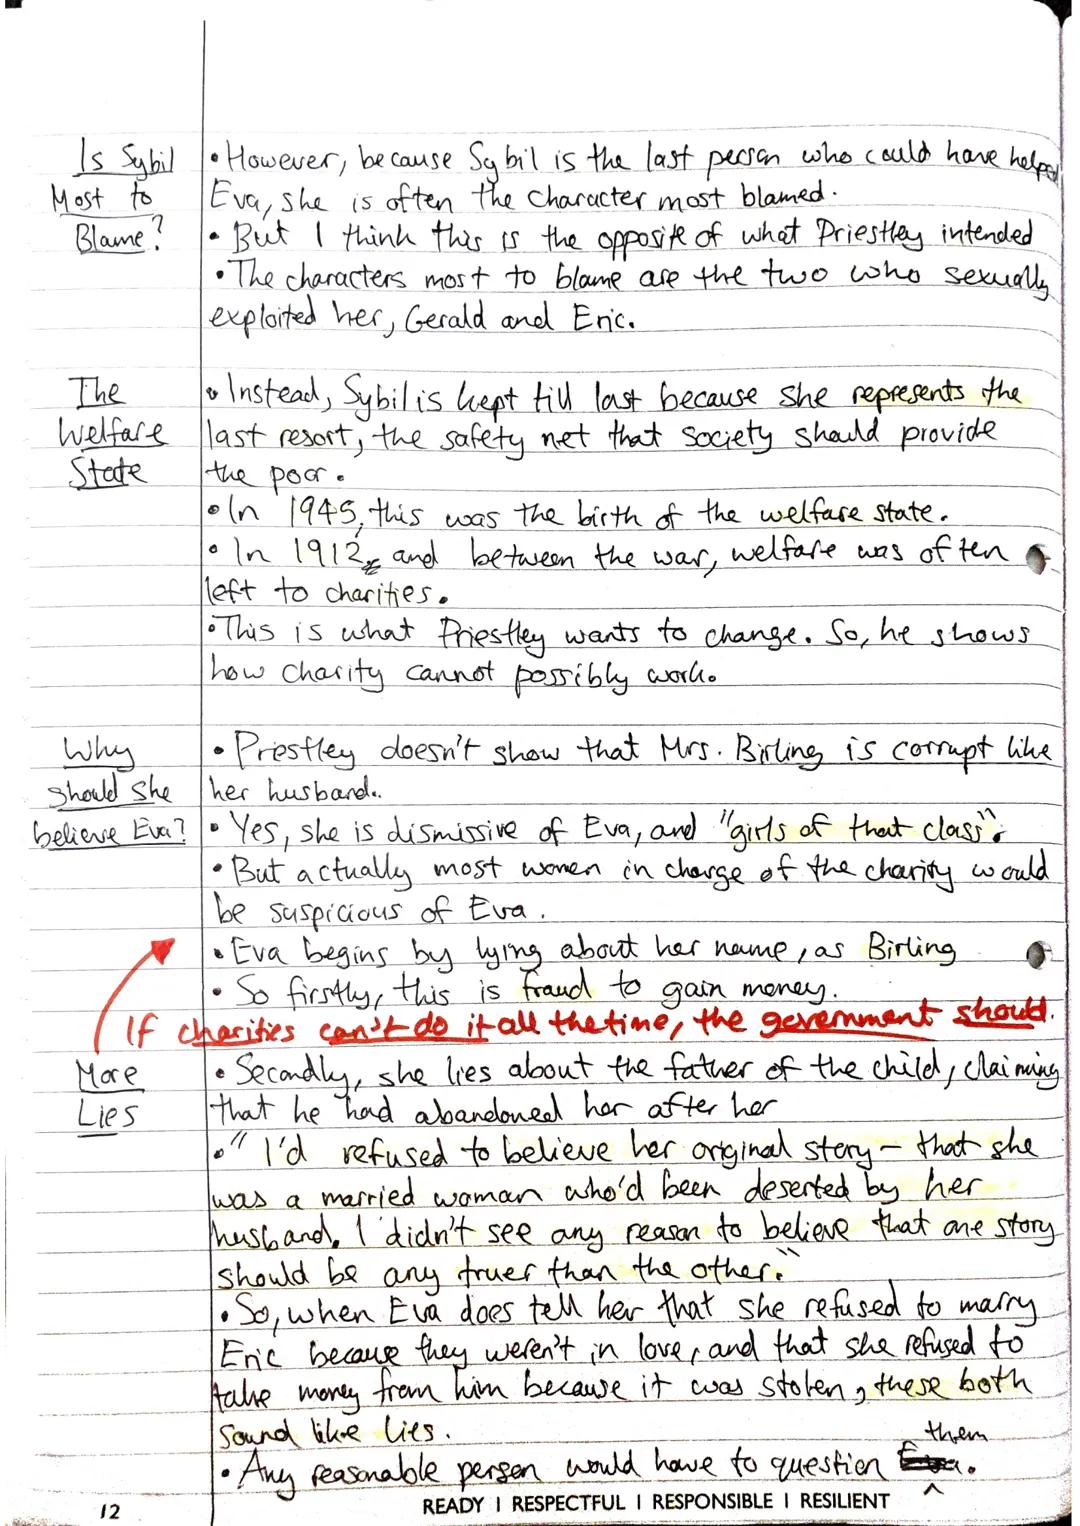 Is Sybil
Most to
Blame?
• However, because Sybil is the last person who could have helped
Eva, she is often the character most blamed.
• But I think this is the opposite of what Priestley intended
• The characters most to blame are the two who sexually
exploited her, Gerald and Eric.
The
Welfare
State
• Instead, Sybil is kept till last because she represents the
last resort, the safety net that society should provide
the poor.
• In 1945, this was the birth of the welfare state.
• In 1912, and between the war, welfare was often
left to charities.
• This is what Priestley wants to change. So, he shows
how charity cannot possibly work.
Why
should she
believe Eva?
• Priestley doesn't show that Mrs. Birling is corrupt like
her husband..
• Yes, she is dismissive of Eva, and "girls of that class".
• But actually most women in charge of the charity would
be suspicious of Eva.
• Eva begins by lying about her name, as Birling
• So firstly, this is fraud to gain money.
If charities can't do it all the time, the government should.
More
Lies
• Secondly, she lies about the father of the child, claiming
that he had abandoned her after her
• "I'd refused to believe her original story - that she
was a married woman who'd been deserted by her
husband. I didn't see any reason to believe that one story
should be any truer than the other."
• So, when Eva does tell her that she refused to marry
Eric because they weren't in love, and that she refused to
take money from him because it was stolen, these both
sound like lies.
• Any reasonable person would have to question them.
12
READY | RESPECTFUL | RESPONSIBLE | RESILIENT